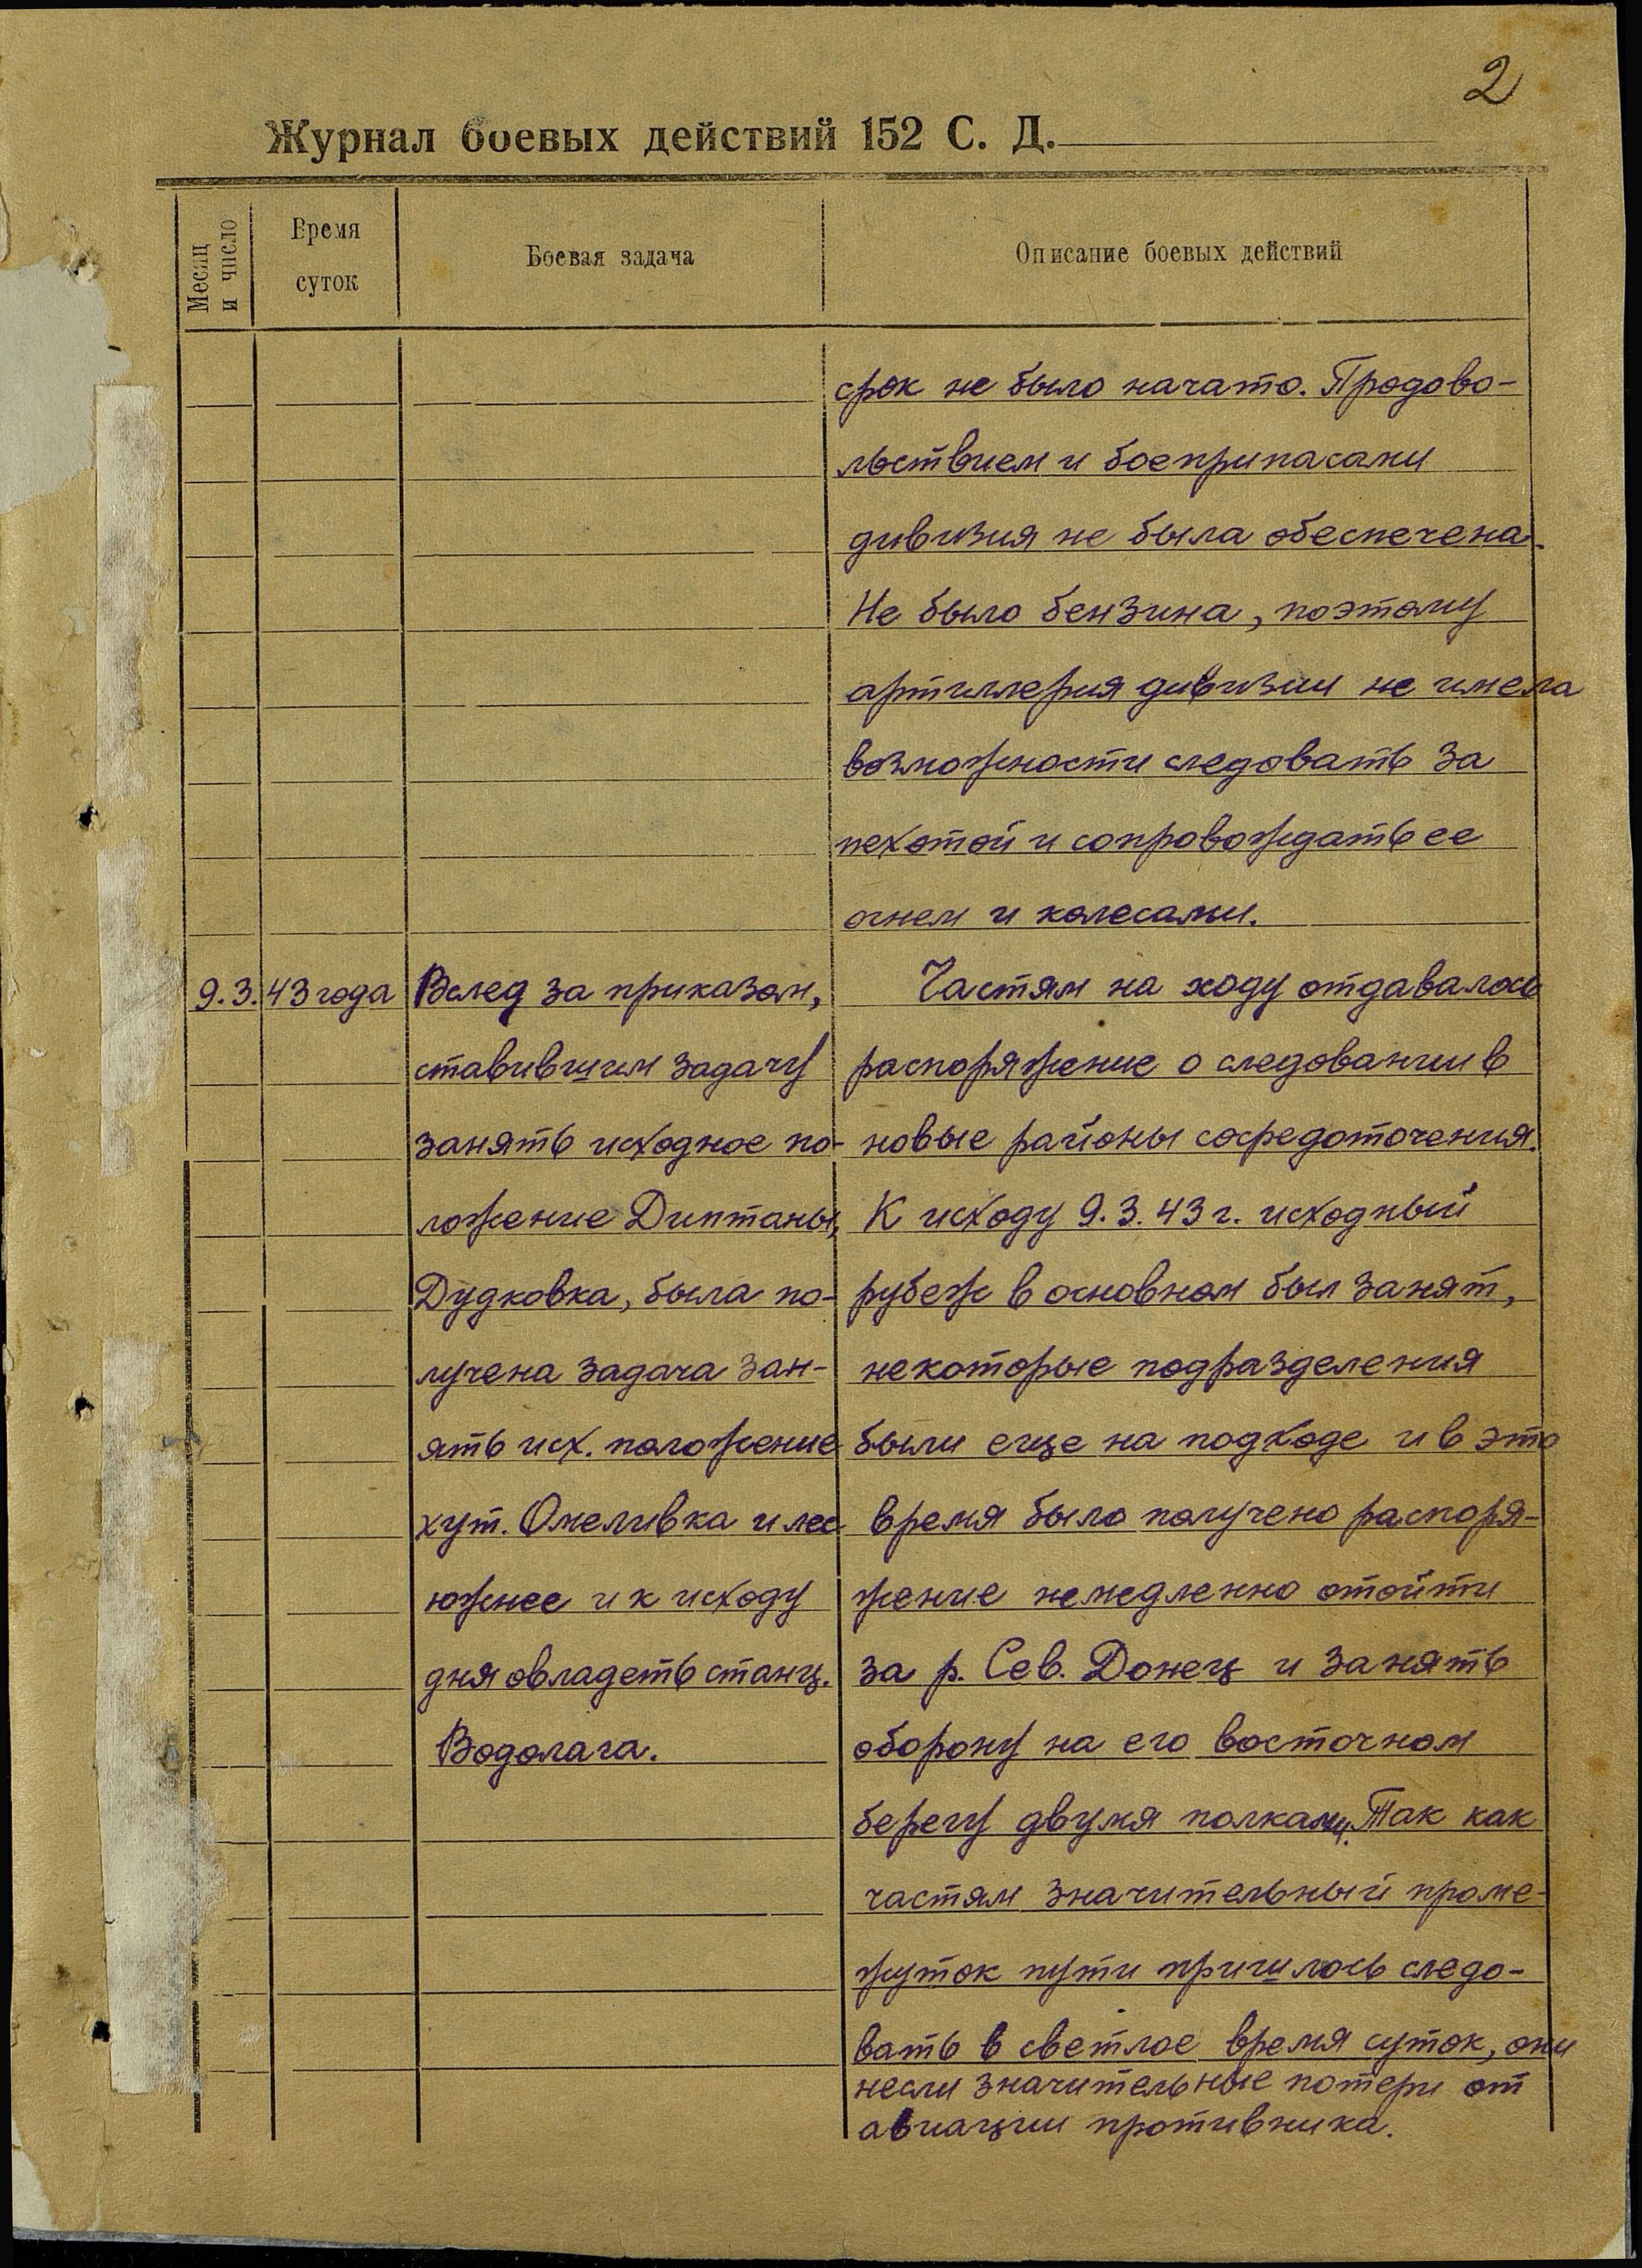 2
Журнал боевых действий 152 С. Д.
Месяц
и число
Время
суток
Боевая задача
Описание боевых действий
срок не было начато. Продово-
льствием и боеприпасами
дивизия не была обеспечена.
Не было бензина, поэтому
артиллерия дивизии не имела
возможности следовать за
пехотой и сопровождать ее
огнем и колесами.
9.3.43 года
Вслед за приказом,
ставившим задачу
занять исходное по-
ложение Диптаны,
Дудковка, была по-
лучена задача зан-
ять исх. положение
хут. Омеливка и лес
южнее и к исходу
дня овладеть станц.
Водолага.
Частям на ходу отдавалось
распоряжение о следовании в
новые районы сосредоточения.
К исходу 9.3.43 г. исходный
рубеж в основном был занят,
некоторые подразделения
были еще на подходе и в это
время было получено распоря-
жение немедленно отойти
за р. Сев. Донец и занять
оборону на его восточном
берегу двумя полками. Так как
частям значительный проме-
жуток пути пришлось следо-
вать в светлое время суток, они
несли значительные потери от
авиации противника.